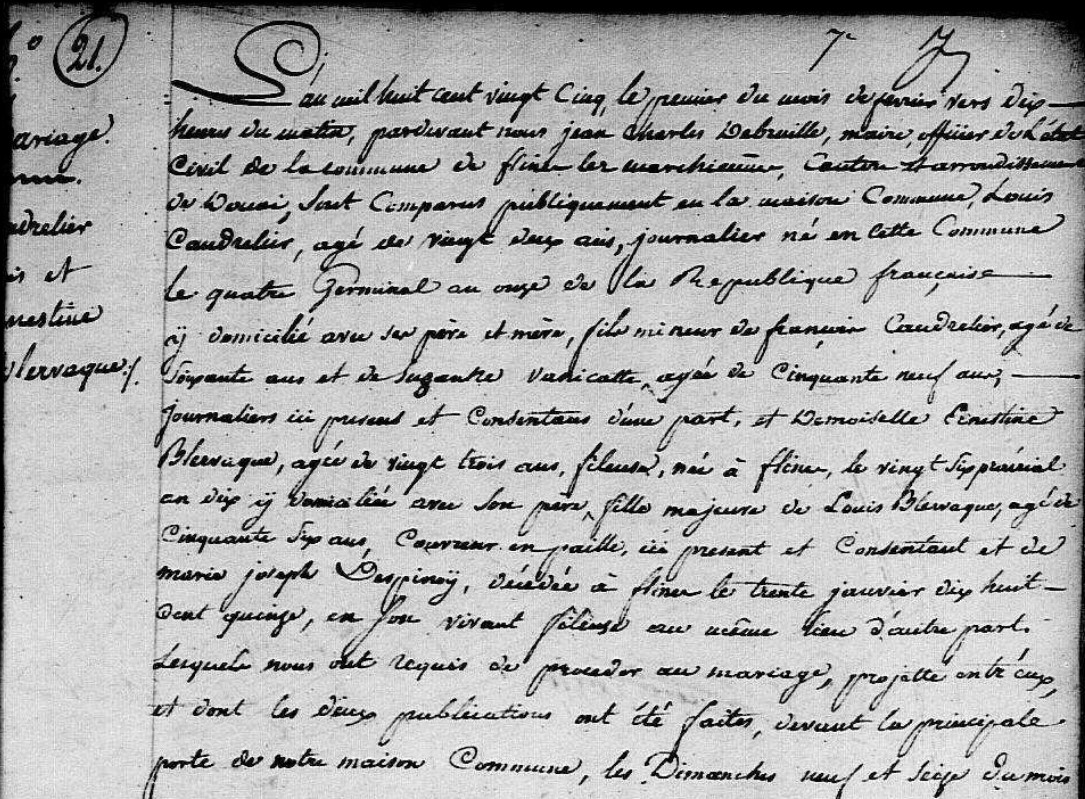 21.
7e
L'an mil huit cent vingt Cinq, le premier du mois de fevrier vers dix
heures du matin, pardevant nous jean Charles Debeuille, maire, officier de L'état
Civil de la commune de flines lez marchiennes, Canton et arrondissement
de Douai, Sont Comparus publiquement en la maison Commune, Louis
Caudrelier, agé de vingt deux ans, journalier né en cette Commune
le quatre Germinal an onze de la Republique française
y domicilié avec ses père et mère, fils mineur de françois Caudrelier, agé de
Soixante ans et de Suzanne Vanicatte, agée de Cinquante neuf ans,
Journaliers ici presens et Consentans d'une part, et Demoiselle Ernestine
Blervaque, agée de vingt trois ans, fileuse, née à flines, le vingt Six prairial
an dix y domiciliée avec Son père, fille majeure de Louis Blervaque, agé de
Cinquante Six ans, Couvreur en paille, ici present et Consentant et de
marie joseph Despinoÿ, décédée à flines le trente janvier dix huit
cent quinze, en Son vivant fileuse au même lieu d'autre part.
Lesquels nous ont requis de proceder au mariage, projetté entr'eux,
et dont les deux publications ont été faites, devant la principale
porte de notre maison Commune, les Dimanches neuf et Seize du mois
ariage.
adrelier
is et
nestine
lervaque